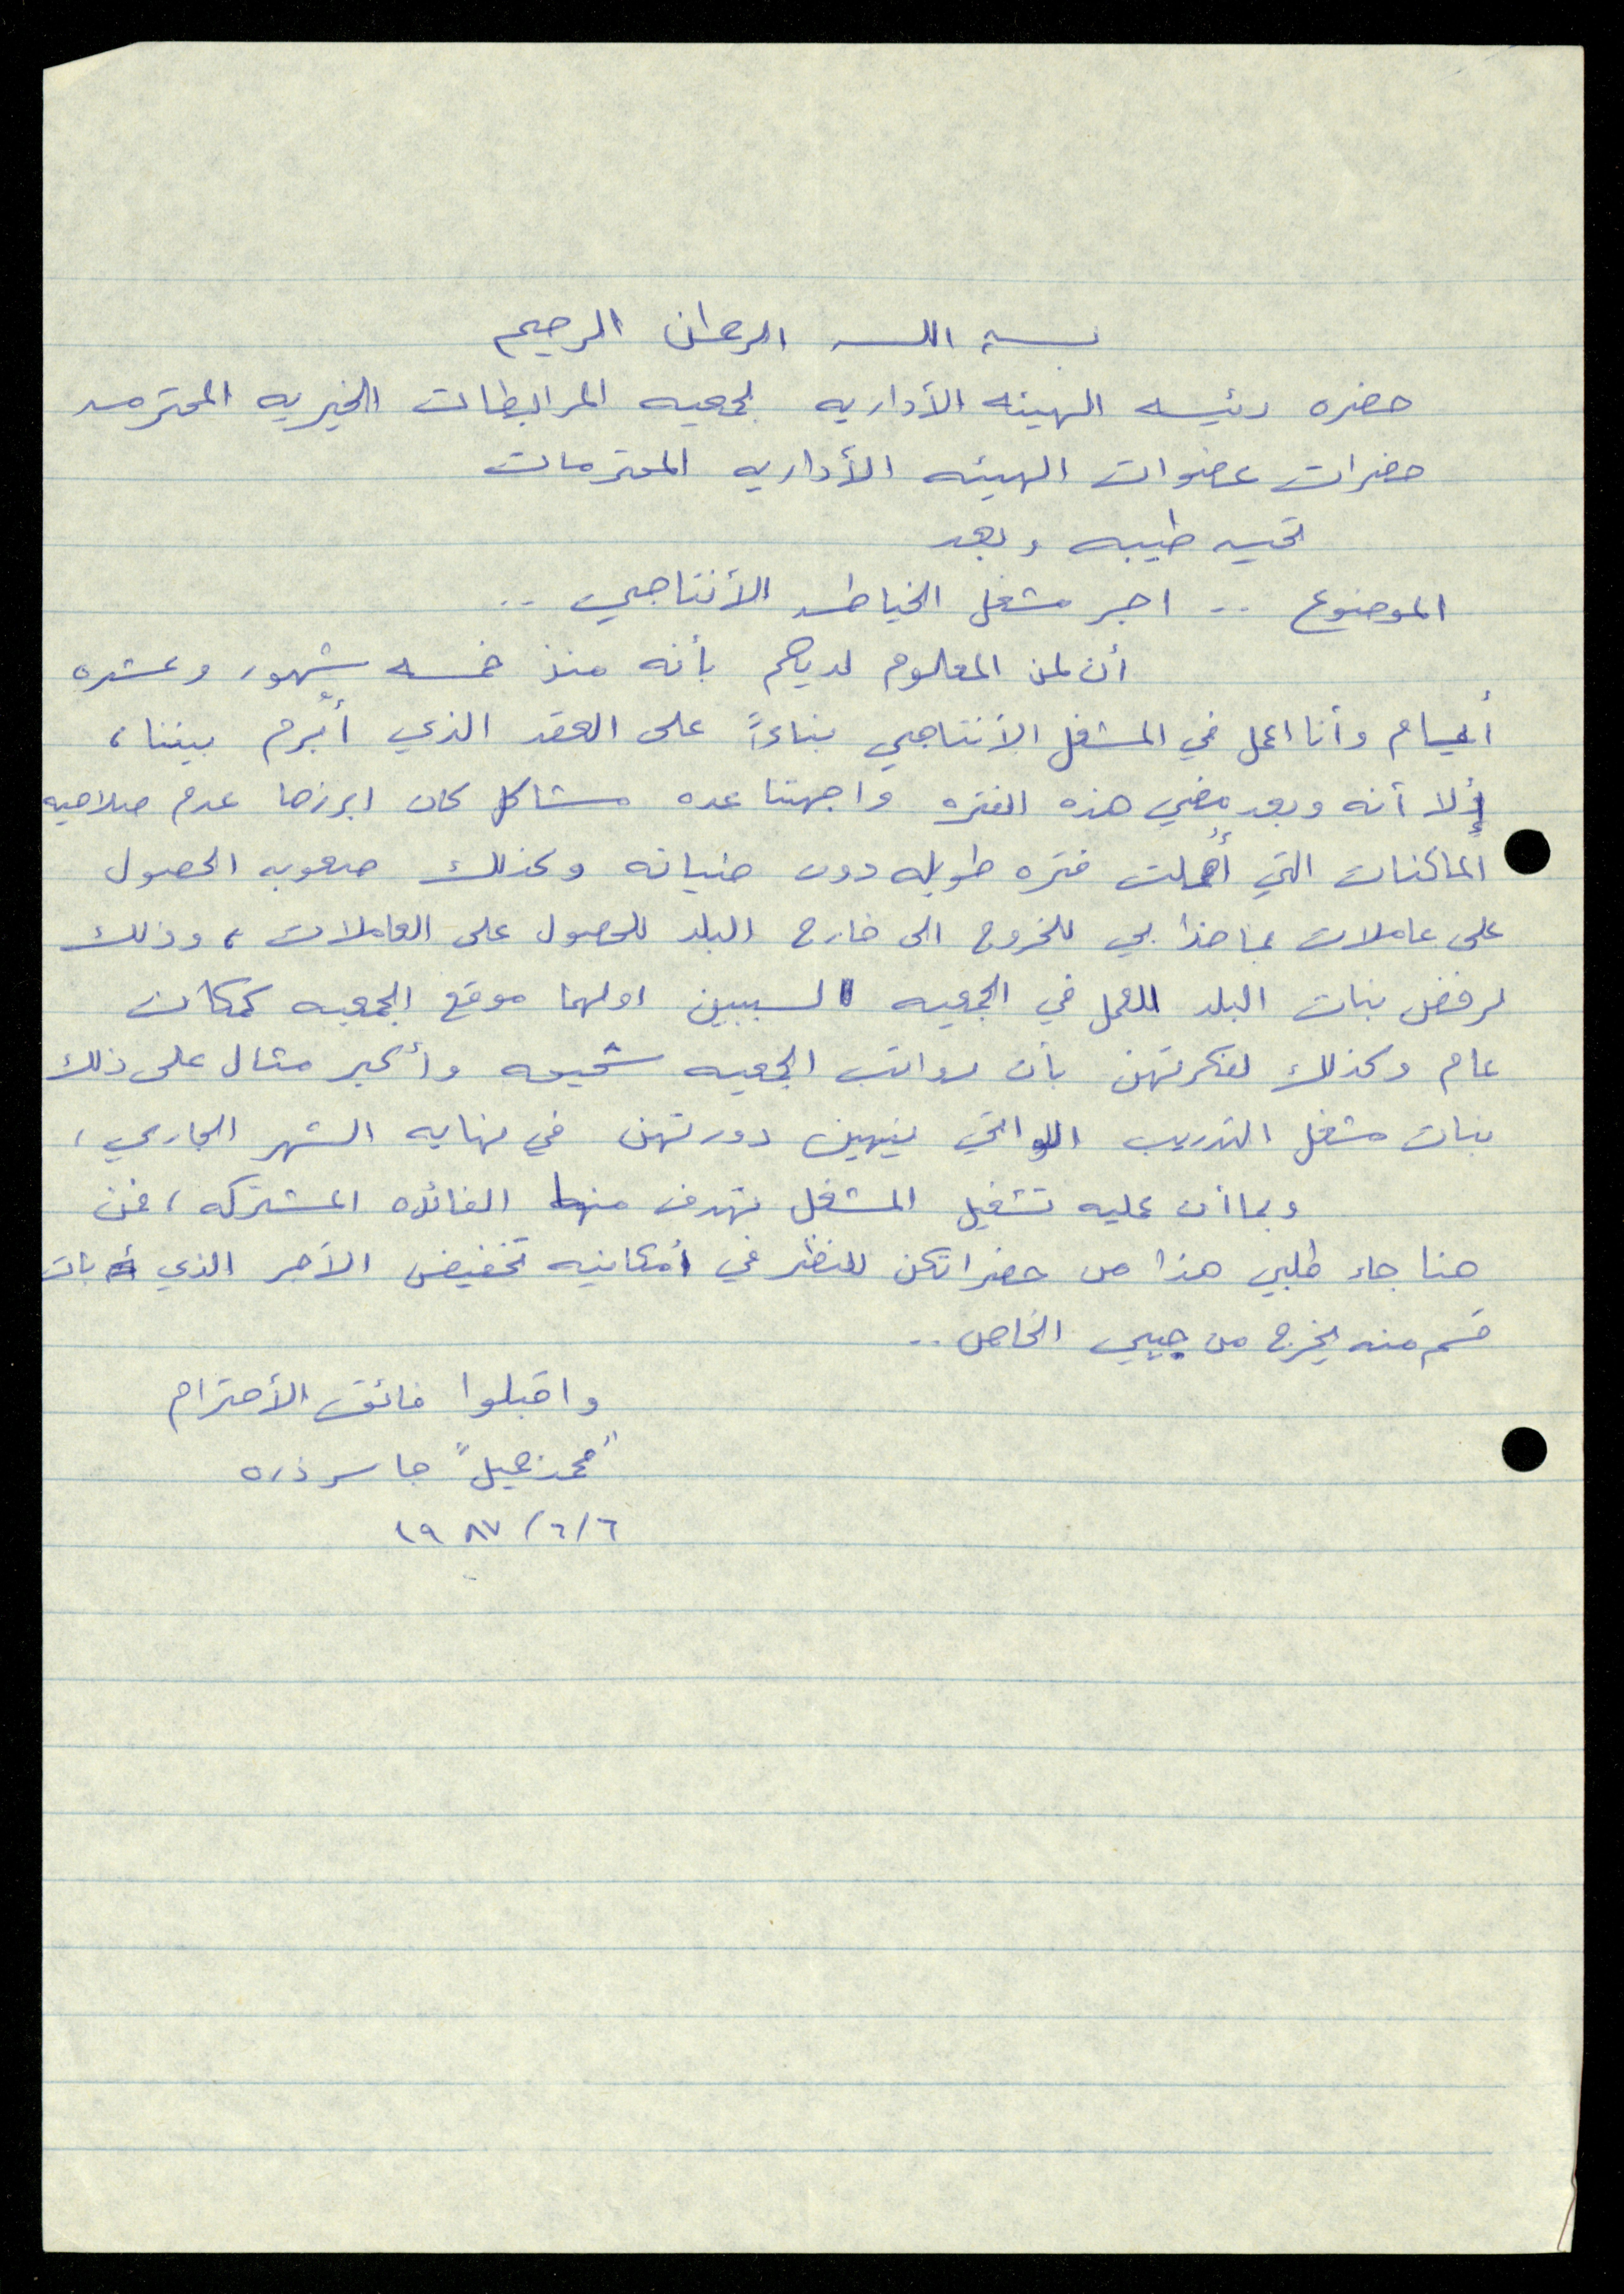 بسم الله الرحمن الرحيم
حضره رئيسه الهيئه الأداريه لجمعيه المرابطات الخيريه المحترمه
حضرات عضوات الهيئه الأداريه المحترمات
تحيه طيبه وبعد
الموضوع .. اجر مشغل الخياطه الأنتاجي ..
أن لمن المعلوم لديكم بأنه منذ خمسه شهور وعشره
أيام وأنا اعمل في المشغل الأنتاجي بناءاً على العقد الذي أُبرم بيننا،
إلا أنه وبعد مضي هذه الفتره واجهتنا عده مشاكل كان ابرزها عدم صلاحيه
الماكنات التي أُهملت فتره طويله دون صيانه وكذلك صعوبه الحصول
على عاملات مما حذا بي للخروج الى خارج البلد للحصول على العاملات، وذلك
لرفض بنات البلد للعمل في الجمعيه لسببين اولهما موقع الجمعيه كمكان
عام وكذلك لفكرتهن بأن رواتب الجمعيه شحيحه وأكبر مثال على ذلك
بنات مشغل التدريب اللواتي ينهين دورتهن في نهايه الشهر الجاري،
وبما أن عمليه تشغيل المشغل تهدف منها الفائده المشتركه، فمن
هنا جاء طلبي هذا من حضراتكن للنظر في أمكانيه تخفيض الأجر الذي بات
قسم منه يخرج من جيبي الخاص ..
واقبلوا فائق الأحترام
"محمد جميل" جاسر دره
٦/٦/ ١٩٨٧